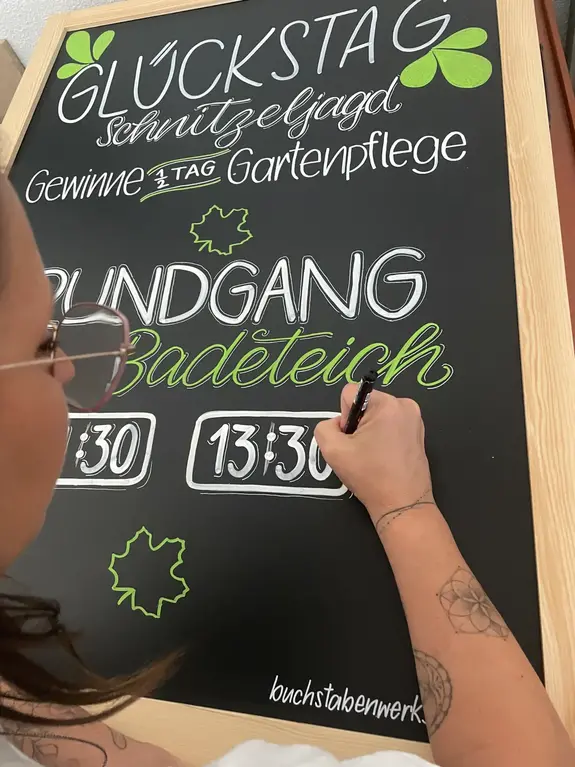 GLÜCKSTAG
Schnitzeljagd
Gewinne ½ TAG Gartenpflege
RUNDGANG
Badeteich
:30 13:30
buchstabenwerk